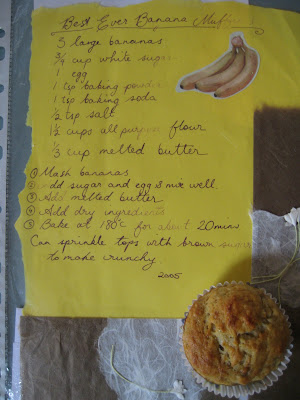 Best Ever Banana Muffins
3 large bananas
3/4 cup white sugar
1 egg
1 tsp baking powder
1 tsp baking soda
1/2 tsp salt
1 1/2 cups all purpose flour
1/3 cup melted butter
① Mash bananas
② Add sugar and egg & mix well.
③ Add melted butter
④ Add dry ingredients
⑤ Bake at 180°c for about 20 mins
Can sprinkle tops with brown sugar
to make crunchy.
2005